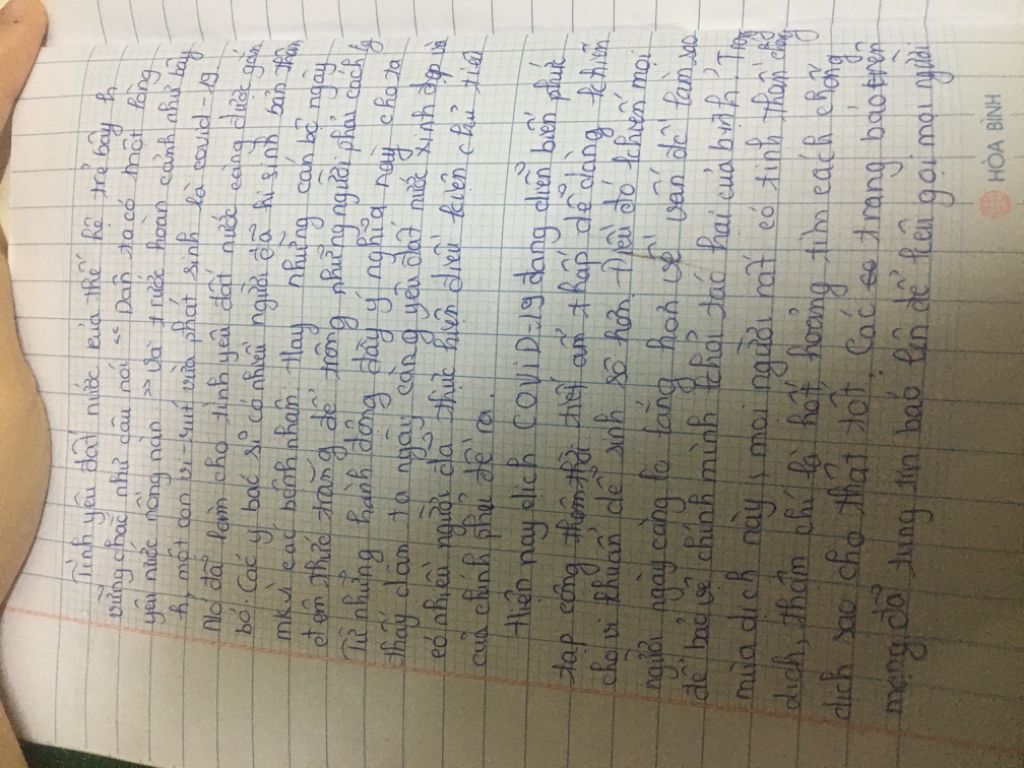 Tình yêu đất nước của thế hệ trẻ bây h
vững chắc như câu nói " Dân ta có một lòng
yêu nước nồng nàn " và trước hoàn cảnh như bây
h, một con vi-rut vừa phát sinh là covid-19
Nó đã làm cho tình yêu đất nước càng được gắn
bó. Các y bác sĩ có nhiều người đã hi sinh bản thân
mk vì các bệnh nhân. Hay những cán bộ ngày
đêm thức trắng để trông những người phải cách ly
Từ những hành động đầy ý nghĩa này cho ta
thấy dân ta ngày càng yêu đất nước xinh đẹp
có nhiều người đã thực hiện điều kiện chủ tiên
của chính phủ đề ra.
Hiện nay dịch COVID-19 đang diễn biến phức
tạp cộng thêm thời tiết ẩm thấp dễ dàng khiến
cho vi khuẩn dễ sinh sô hơn. Điều đó khiến mọi
người ngày càng lo lắng hơn về vấn đề làm sao
để bảo vệ chính mình khỏi tác hại của bệnh? Trong
mùa dịch này, mọi người rất có tinh thần chống
dịch, thậm chí là hốt hoảng tìm cách chống
dịch sao cho thật tốt. Các trang báo trên
mạng đổ tung tin báo lên để kêu gọi mọi người
HÒA BÌNH